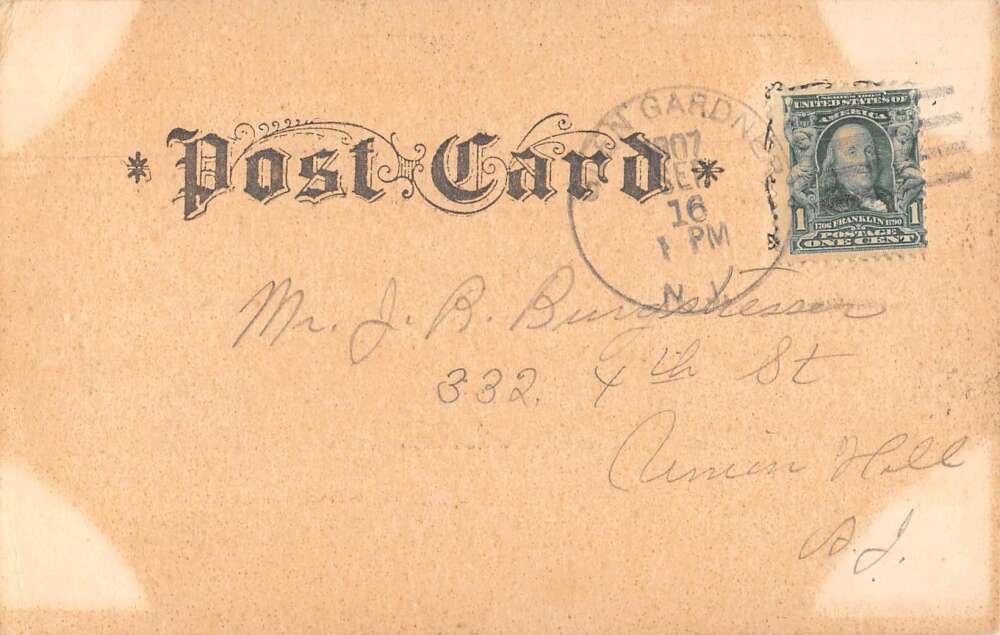 Post Card
GARDNER
1907
SEP
16
1 PM
N.Y.
SERIES 1902
UNITED STATES OF
AMERICA
1 1706 FRANKLIN 1790 1
POSTAGE
ONE CENT
Mr. J. R. Burgstresser
332. 4th St
Union Hill
N.J.